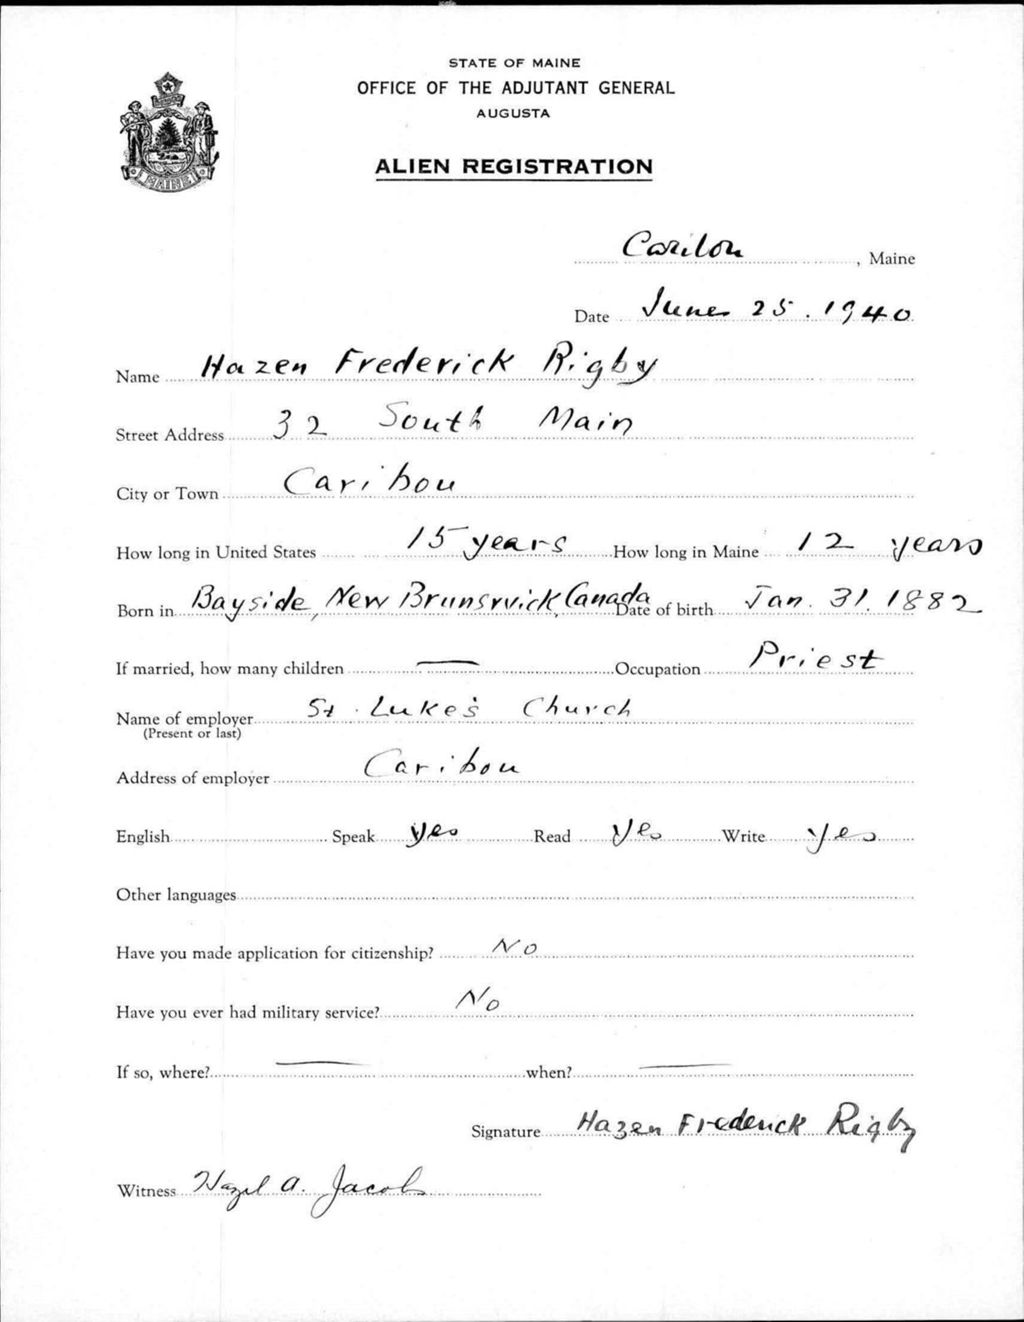 STATE OF MAINE
OFFICE OF THE ADJUTANT GENERAL
AUGUSTA
ALIEN REGISTRATION
MAINE
Caribou, Maine
Date June 25. 1940
Name Hazen Frederick Rigby
Street Address 32 South Main
City or Town Caribou
How long in United States 15 years How long in Maine 12 years
Born in Bayside, New Brunswick, Canada Date of birth Jan. 31. 1882
If married, how many children — Occupation Priest
Name of employer St. Luke's Church
(Present or last)
Address of employer Caribou
English Speak yes Read Yes Write yes
Other languages
Have you made application for citizenship? No
Have you ever had military service? No
If so, where? — when? —
Signature Hazen Frederick Rigby
Witness Hazel A. Jacobs